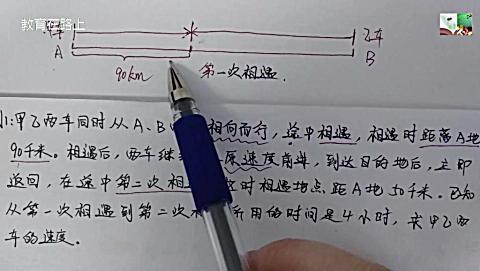 教育在路上
车
乙车
A
B
90km
第一次相遇.
1:甲乙两车同时从A、B 相向而行,途中相遇,相遇时距离A地
90千米。相遇后,两车继 原速度前进,到达目的地后,立即
返回,在途中第二次相 这时相遇地点距A地50千米。已知
从第一次相遇到第二次相 所用的时间是4小时,求甲乙两
车的速度。